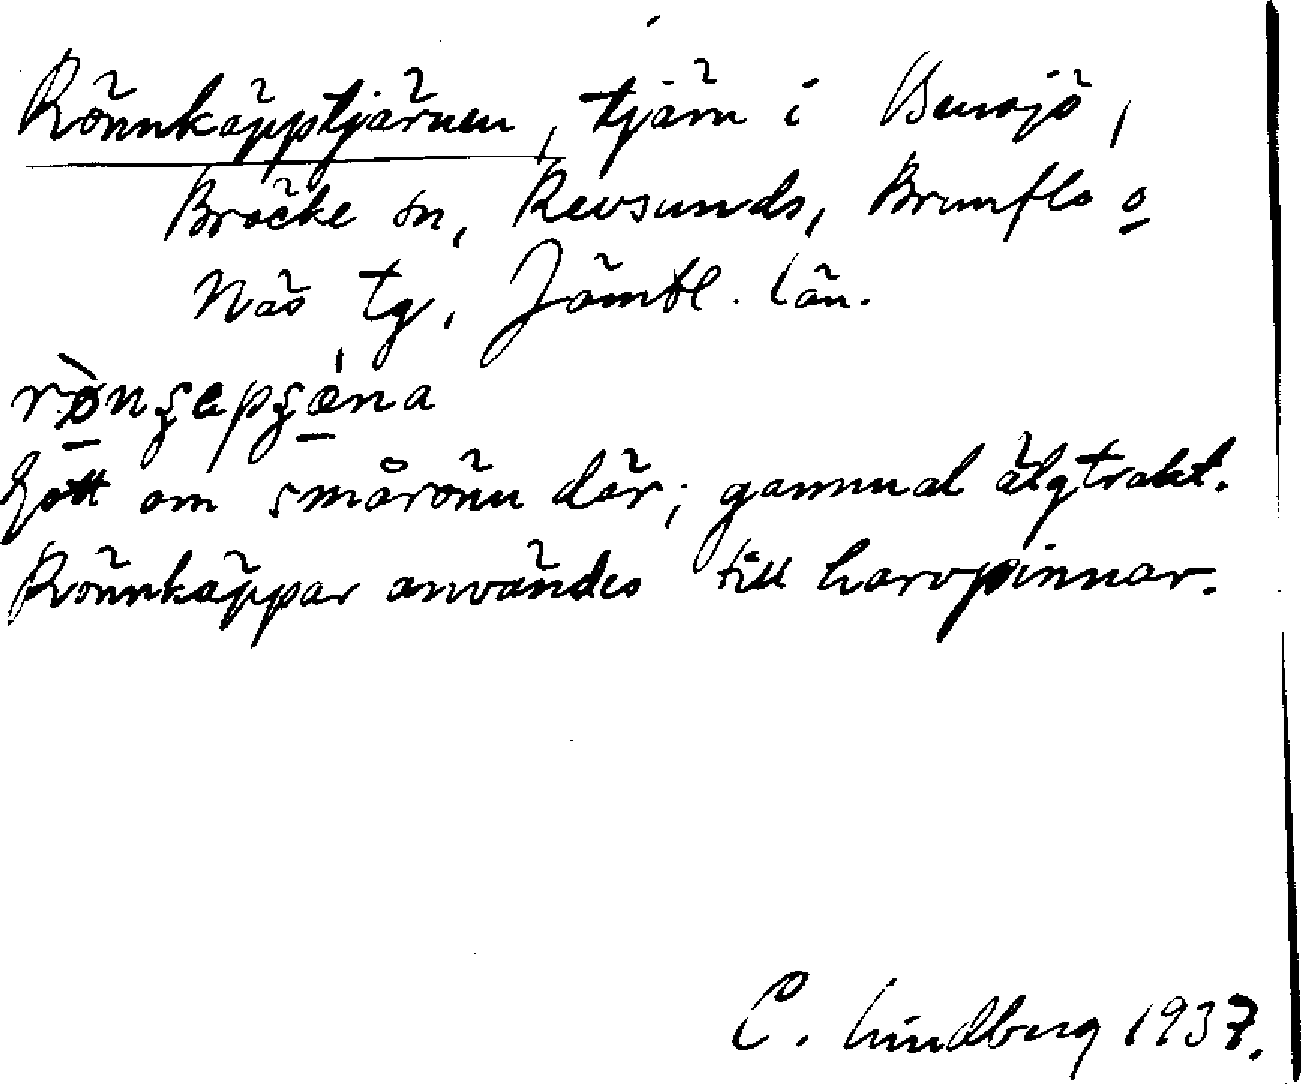 Rönnkäpptjärnen, tjärn i Bensjö,
Bräcke sn, Revsunds, Brunflo o
Näs tg, Jämtl. län.
gott om smårönn där; gammal älgtrakt.
Rönnkäppar användes till harvpinnar.
C. Lindberg 1937.